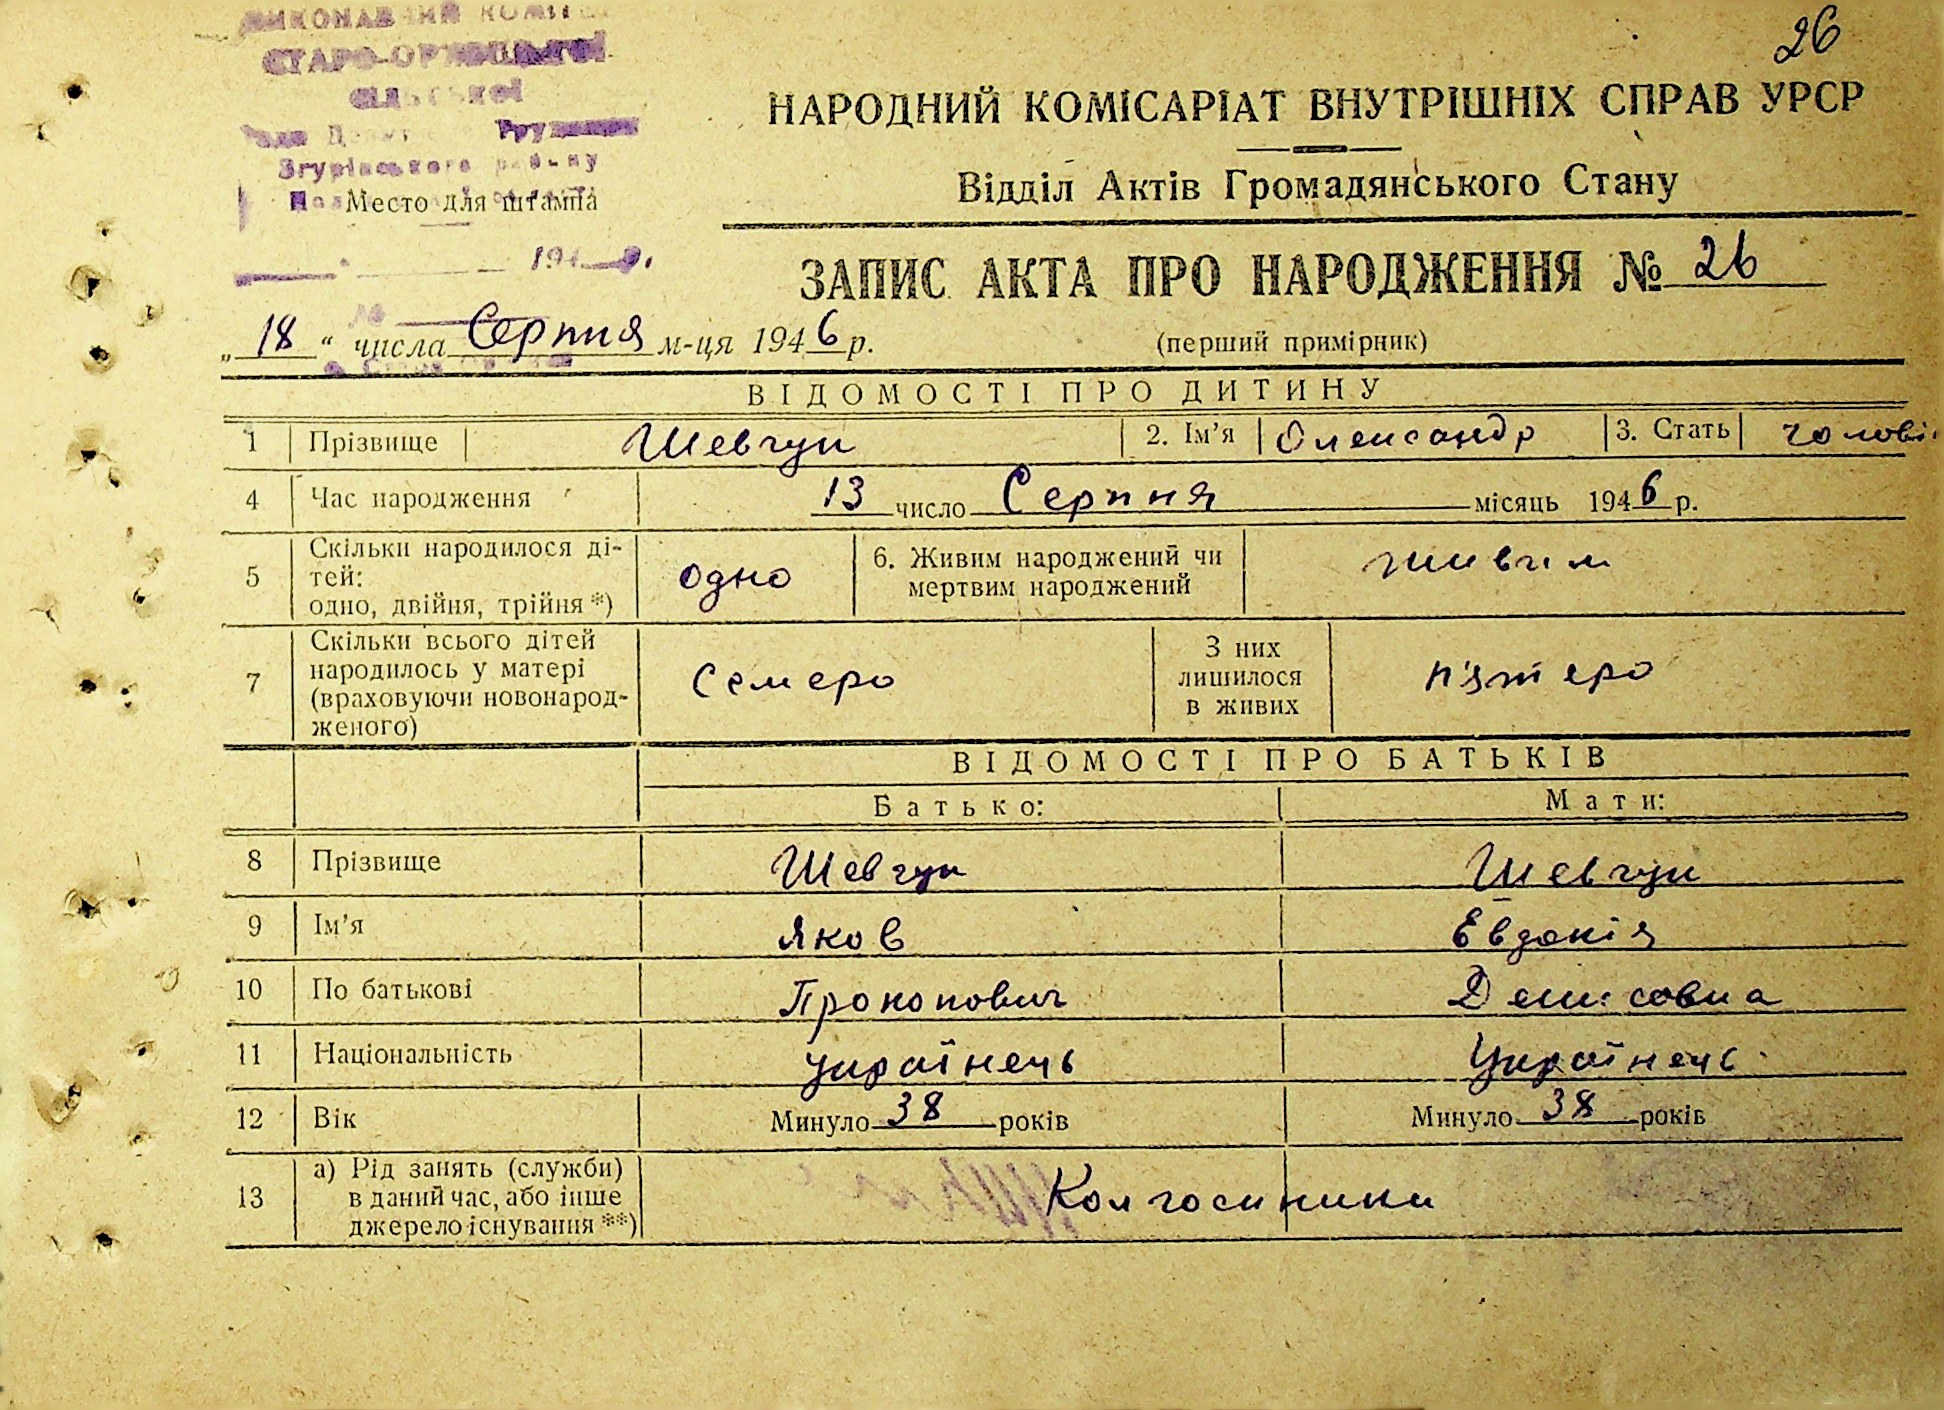 26
ВИКОНАВЧИЙ КОМІТЕТ
СТАРО-ОРЖИЦЬКОЇ
СІЛЬСЬКОЇ
Ради
Згурівського району
Место для штампа
194 р.
НАРОДНИЙ КОМІСАРІАТ ВНУТРІШНІХ СПРАВ УРСР
Відділ Актів Громадянського Стану
ЗАПИС АКТА ПРО НАРОДЖЕННЯ № 26
„ 18 “ числа Серпня м-ця 1946 р. (перший примірник)
ВІДОМОСТІ ПРО ДИТИНУ
1 Прізвище Шевчук 2. Ім’я Олександр 3. Стать чолові
4 Час народження 13 число Серпня місяць 1946 р.
5 Скільки народилося ді-
тей:
одно, двійня, трійня *) одно 6. Живим народжений чи
мертвим народжений живим
7 Скільки всього дітей
народилось у матері
(враховуючи новонарод-
женого) Семеро З них
лишилося
в живих п'ятеро
ВІДОМОСТІ ПРО БАТЬКІВ
Батько: Мати:
8 Прізвище Шевчук Шевчук
9 Ім’я Яков Евдокія
10 По батькові Прокопович Денисовна
11 Національність українець Українець
12 Вік Минуло 38 років Минуло 38 років
13 а) Рід занять (служби)
в даний час, або інше
джерело існування **) Колгоспники